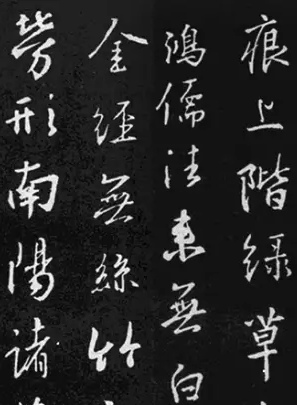 痕上階綠草
鴻儒往来無白
金經無絲竹
勞形南陽諸